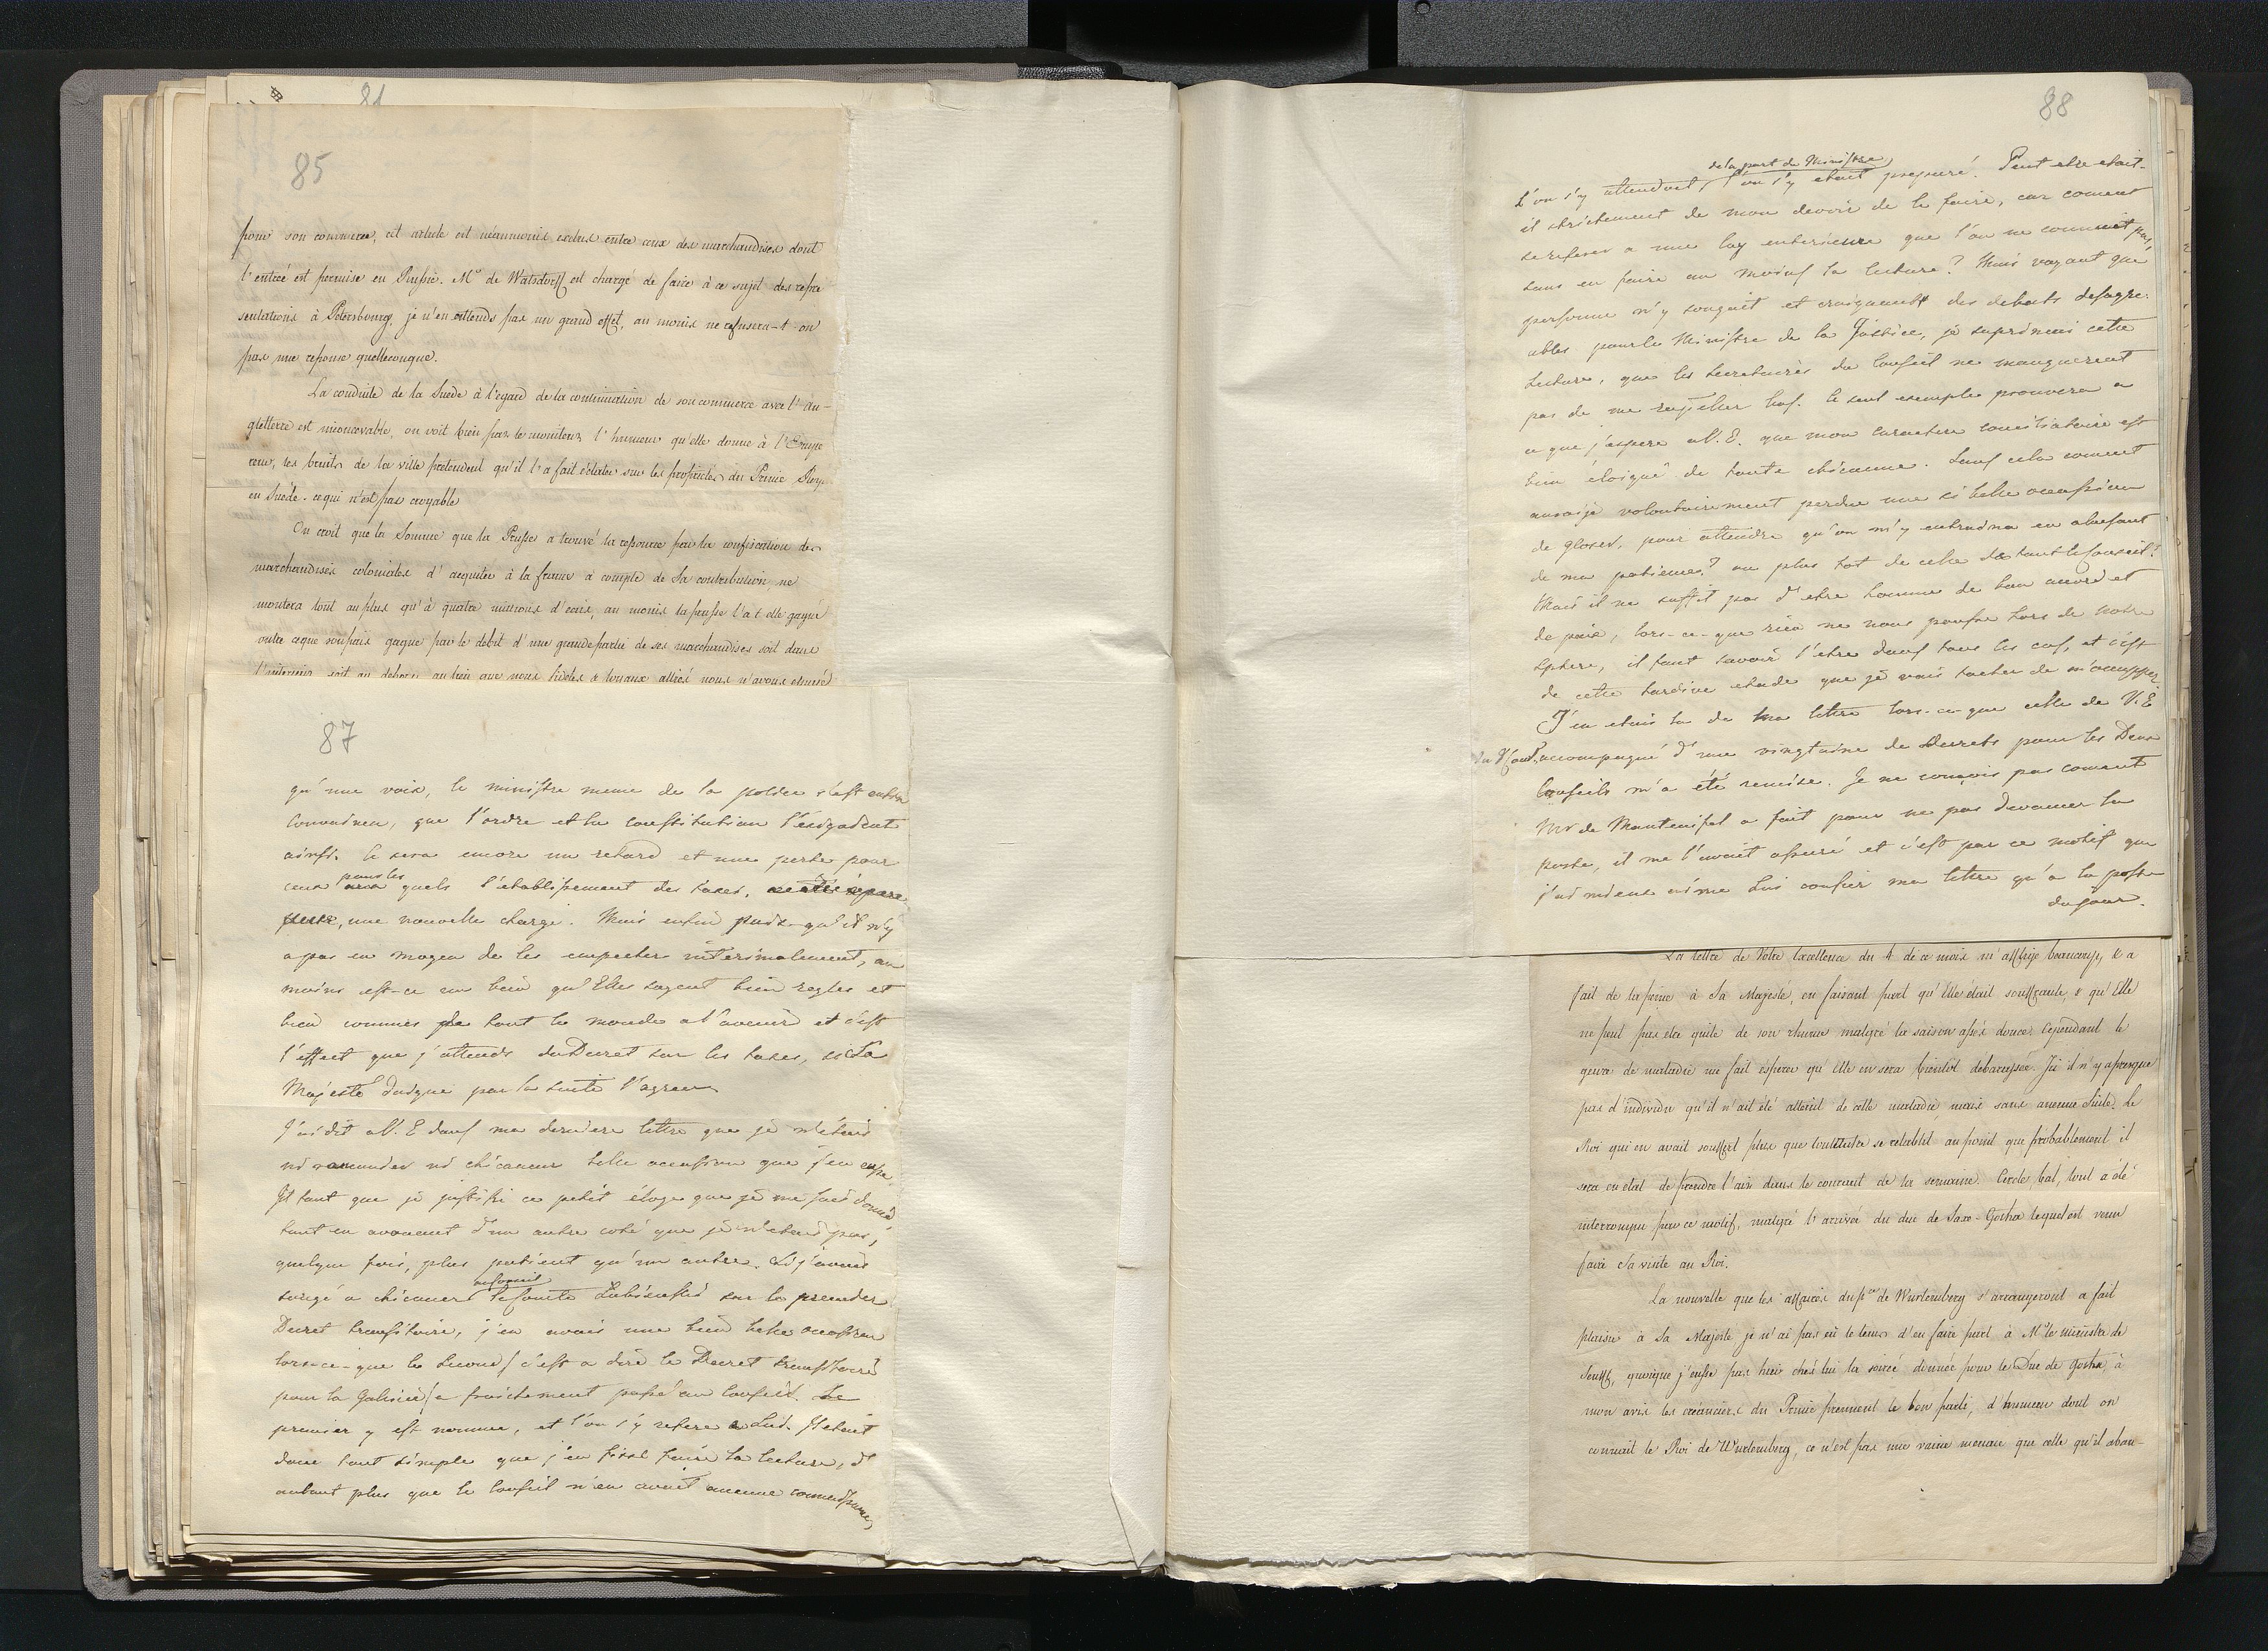 81
85
pour son commerce, cet article est néanmoins exclus entre ceux des marchandises dont
l'entrée est permise en Russie. Mr de Watsdorff est chargé de faire à ce sujet des repré
sentations à Petersbourg, je n'en attends pas un grand effet, au moins ne refusera-t-on
pas une reponse quelleconque.
La conduite de la Suède à l'egard de la continuation de son commerce avec l'An-
gletterre est inconcevable, on voit bien par le moniteur l'humeur qu'elle donne à l'Empe
reur, les bruits de la ville pretendent qu'il l'a fait éclater sur les propriétés du Prince Roy.
en Suède. ce qui n'est pas croyable
On croit que la Somme que la Prusse a trouvé la ressource par la confiscation des
marchandises coloniales d'acquiter à la france à compte de Sa contribution, ne
montera tout au plus qu'à quatre millions d'écus, au moins la prusse l'a t elle gagné
outre ce que son païs gagne par le debit d'une grande partie de ses marchandises soit dans
l'interieur soit au dehors, au lieu que nous fidèles & loyaux alliés nous n'avons
87
qu'une voix, le ministre meme de la police s'est
convaincu, que l'ordre et la constitution l'exigeaient
ainsi. Ce sera encore un retard et une perte pour
ceux pour les quels l'etablissement des taxes,
une nouvelle charge. Mais enfin puis-qu'il n'y
a pas eu moyen de les empecher interimalement, au
moins est-ce un bien qu'Elles soyent bien reglés et
bien connues de tout le monde a l'avenir et c'est
l'effect que j'attends du Decret sur les taxes, si Sa
Majesté daigne par la suite l'agreer
J'ai dit a V. E dans ma derniere lettre que je n'étais
ni rancunier ni chicaneur belle occasion que j'en eusse
Il faut que je justifie ce petit éloge que je me suis donné,
tout en avouant d'un autre coté que je n'etais pas,
quelque fois, plus patient qu'un autre. Si j'avais
songé a chicaner au Conseil le Comte Lubienski sur le premier
Decret transitoire, j'en avais une bien belle occasion
lors-ce-que le second / c'est a dire le Decret transitoire
pour la Galicie / a fraichement passé au Conseil. Le
premier y est nommé, et l'on s'y refere a Lui. Il etait
donc tout simple que j'en fisse faire la lecture, d'
autant plus que le Conseil n'en avait aucune connaissance,
88
de la part du Ministre
L'on s'y attendait, l'on s'y etait preparé. Peut etre etait-
il strictement de mon devoir de le faire, car coment
se referer a une loy anterieure que l'on ne connait pas,
sans en faire au moins la lecture? Mais voyant que
personne n'y songeait et craignant des debats desagre-
ables pour le Ministre de la Justice, je suprimai cette
lecture, que les Secretaires du Conseil ne manquerent
pas de me Ce seul exemple prouvera a
ce que j'espere a V. E. que mon caractere conciliatoire est
bien éloigné de toute chicanne. Sans cela coment
aurai je volontairement perdu une si belle occassion
de gloser, pour attendre qu'on m'y entraina en abusant
de ma patience? ou plus tot de celle de tout le Conseil?
Mais il ne suffit pas d'etre homme de bon accord et
de paix, lors-ce-que rien ne nous pousse hors de notre
sphere, il faut savoir l'etre dans tous les cas, et c'est
de cette tardive etude que je vais tacher de m'occupper
J'en etais la de ma lettre lors-ce-que celle de V. E
accompagné d'une vingtaine de Decrets pour les Deux
Conseils m'a été remise. Je ne conçois pas comant
Mr de Manteufel a fait pour ne pas devancer la
poste, il me l'avait assuré et c'est par ce motif que
j'ai mieux aimé Lui confier ma lettre qu'a la poste
du jour.
La lettre de Votre Excellence du 4 de ce mois m'afflige beaucoup, & a
fait de la peine à Sa Majesté, en faisant part qu'Elle était souffrante, & qu'Elle
ne peut pas etre quite de son rhume malgré la saison assés douce. Cependant le
genre de maladie me fait espérer qu'Elle en sera bientôt debarrassée. Ici il n'y a presque
pas d'individu qu'il n'ait été atteint de cette maladie mais sans aucune Suite. Le
Roi qui en avait souffert plus que tout autre se retablit au point que probablement il
sera en etat de prendre l'air dans le courant de la semaine. Cercle, bal, tout a été
interrompu par ce motif, malgré l'arrivée du duc de Saxe-Gotha lequel est venu
faire Sa visite au Roi.
La nouvelle que les affaires du Pce de Wurtemberg s'arrangeront a fait
plaisir à Sa Majesté je n'ai pas eû le tems d'en faire part à Mr le ministre de
Senfft, quoique j'eusse passé hier chés lui la soirée donnée pour le Duc de Gotha, à
mon avis les créanciers du Prince prennent le bon parti, d'humeur dont on
connait le Roi de Wurtemberg, ce n'est pas une vaine menace que celle qu'il aban-